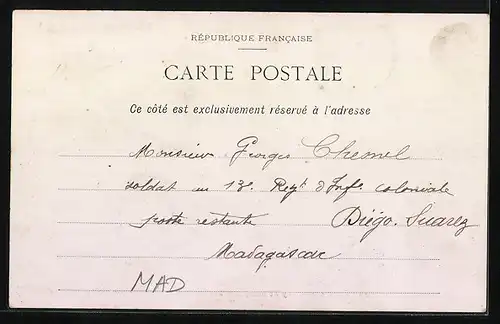 RÉPUBLIQUE FRANÇAISE
CARTE POSTALE
Ce côté est exclusivement réservé à l'adresse
Monsieur Georges
soldat au 13e Regt d'Infie coloniale
poste restante Diégo-Suarez
Madagascar
MAD